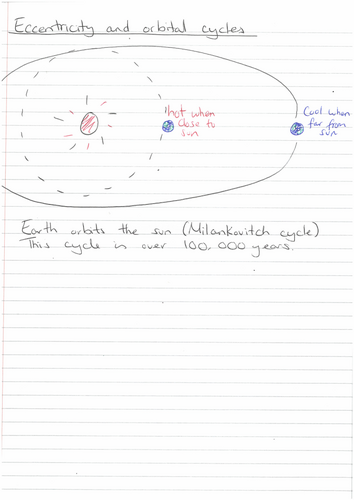 Eccentricity and orbital cycles
hot when
close to
sun
Cool when
far from
sun
Earth orbits the sun (Milankovitch cycle)
This cycle is over 100,000 years.